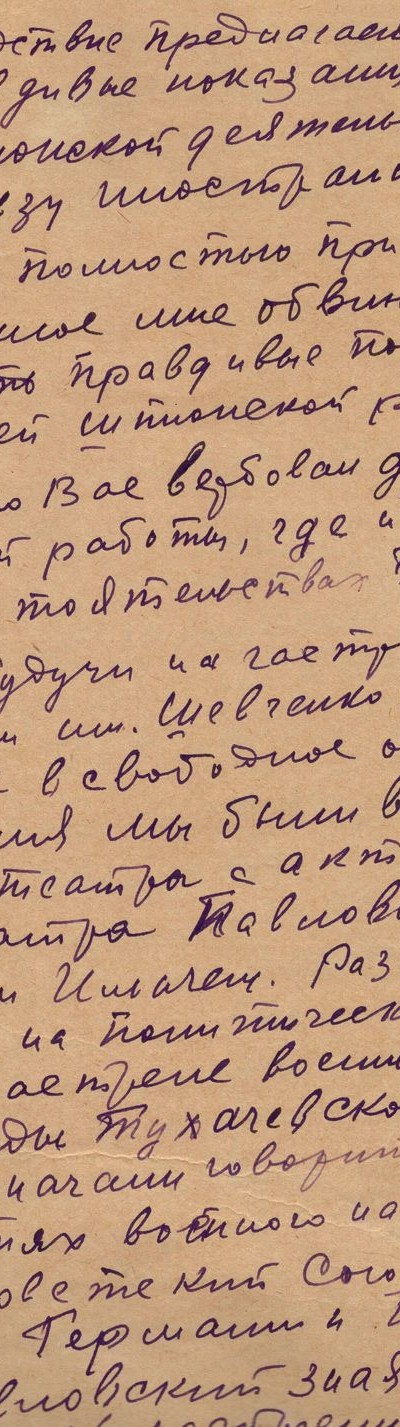 дствие предлагаем
дивые показани
онской деятель
язу иностран
полностью при
мое мне обвин
ть правдивые по
ей шпионской р
о Вас вербовал д
й работы, где и
тоятельствах
удучи на гастр
и им. Шевченко
в свободное о
ния мы были в
театра с акт
атра Павловс
и Ильичем. Раз
на политическ
асстреле воен
ды Тухачевско
начали говорит
иях военного на
оветский Сою
Германии и
вловский зная